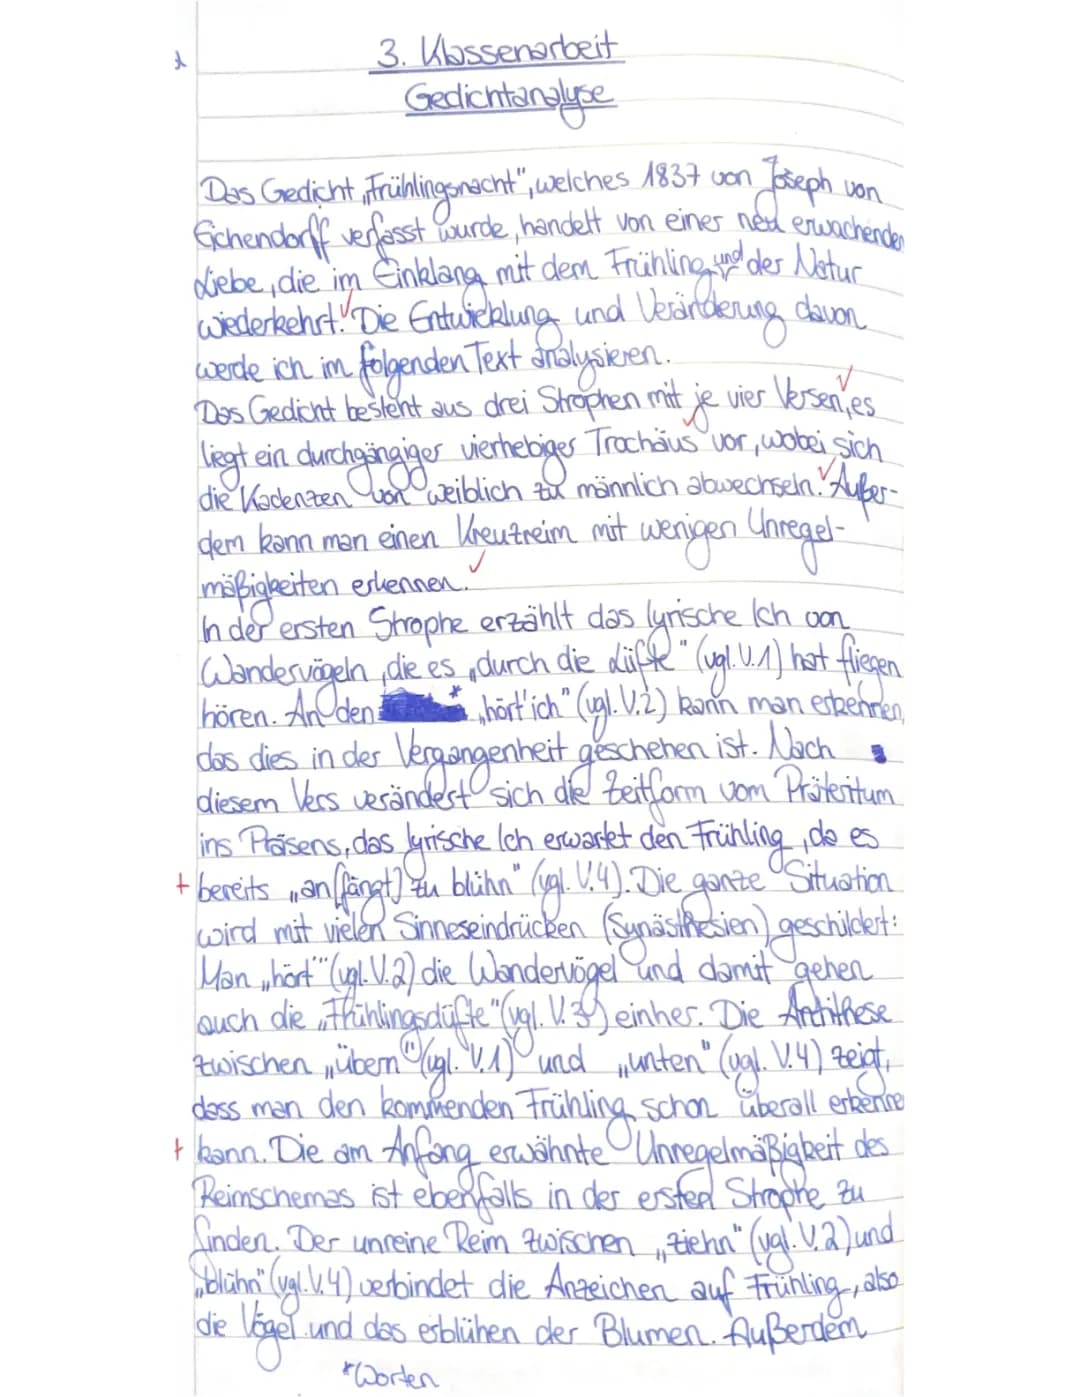 3. Klassenarbeit
Gedichtanalyse
Das Gedicht „Frühlingsnacht", welches 1837 von Joseph von
Eichendorff verfasst wurde, handelt von einer neu erwachenden
Liebe, die im Einklang mit dem Frühling und der Natur
wiederkehrt. Die Entwicklung und Veränderung davon
werde ich im folgenden Text analysieren.
Das Gedicht besteht aus drei Strophen mit je vier Versen, es
liegt ein durchgängiger vierhebiger Trochäus vor, wobei sich
die Kadenzen von weiblich zu männlich abwechseln. Außer-
dem kann man einen Kreutzreim mit wenigen Unregel-
mäßigkeiten erkennen.
In der ersten Strophe erzählt das lyrische Ich von
Wandervögeln, die es „durch die Lüfte" (vgl. V.1) hat fliegen
hören. An den * „hört' ich" (vgl. V.2) kann man erkennen,
das dies in der Vergangenheit geschehen ist. Nach
diesem Vers verändert sich die Zeitform vom Präteritum
ins Präsens, das lyrische Ich erwartet den Frühling, da es
+ bereits „an[fängt] zu blühn" (vgl. V.4). Die ganze Situation
wird mit vielen Sinneseindrücken (Synästhesien) geschildert:
Man „hört'" (vgl. V.2) die Wandervögel und damit gehen
auch die „Frühlingsdüfte" (vgl. V.3) einher. Die Antithese
zwischen „übern" (vgl. V.1) und „unten" (vgl. V.4) zeigt,
dass man den kommenden Frühling schon überall erkenne
+ kann. Die am Anfang erwähnte Unregelmäßigkeit des
Reimschemas ist ebenfalls in der ersten Strophe zu
finden. Der unreine Reim zwischen „ziehn" (vgl. V.2) und
„blühn" (vgl. V.4) verbindet die Anzeichen auf Frühling, also
die Vögel und das erblühen der Blumen. Außerdem
*Worten